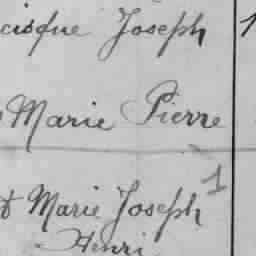 cisque Joseph 1
Marie Pierre
t Marie Joseph 1
Henri